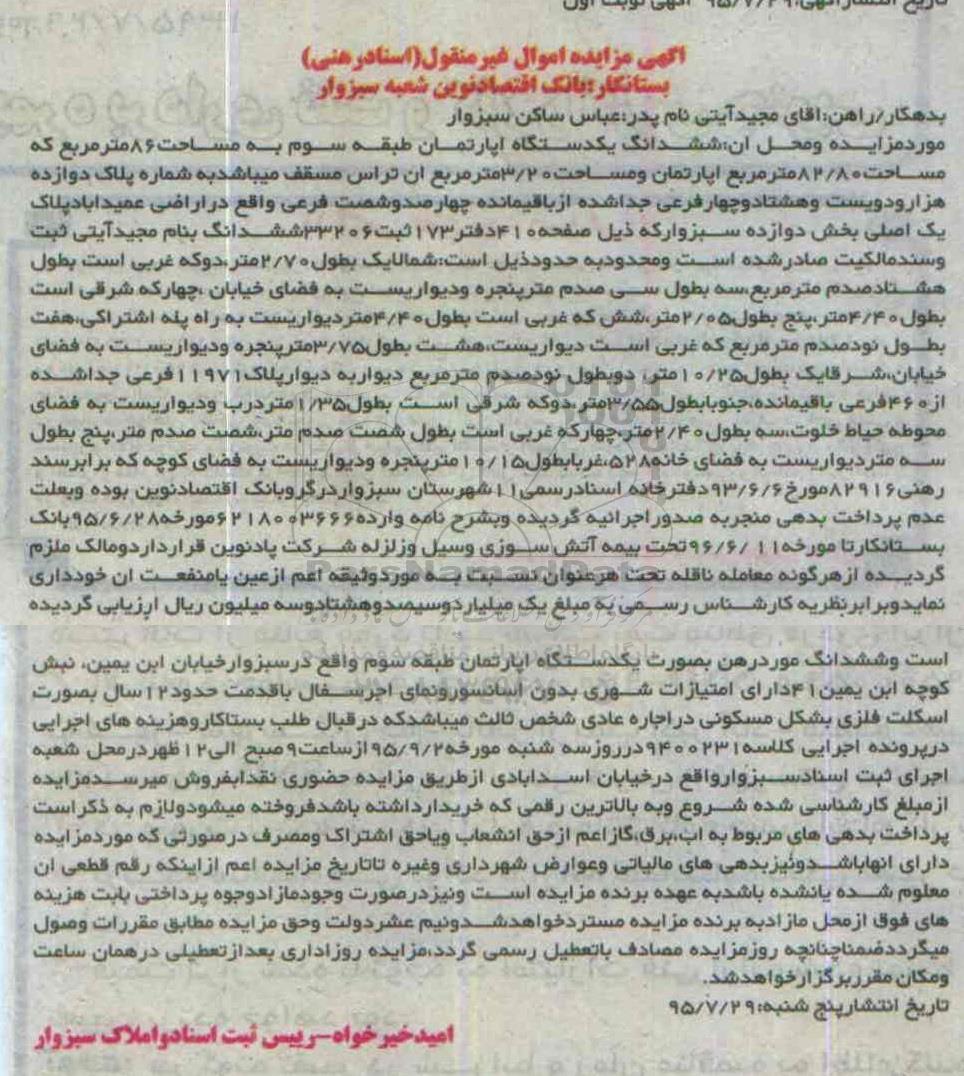 تاریخ انتشار اگهی:۹۵/۷/۲۹ اگهی نوبت اول
اگهی مزایده اموال غیرمنقول(اسنادرهنی)
بستانکار:بانک اقتصادنوین شعبه سبزوار
بدهکار/راهن:اقای مجیدآیتی نام پدر:عباس ساکن سبزوار
موردمزایده ومحل ان:ششدانگ یکدستگاه اپارتمان طبقه سوم به مساحت۸۶مترمربع که
مساحت۸۲/۸۰مترمربع اپارتمان ومساحت۳/۲۰مترمربع ان تراس مسقف میباشدبه شماره پلاک دوازده
هزارودویست وهشتادوچهارفرعی جداشده ازباقیمانده چهارصدوشصت فرعی واقع دراراضی عمیدابادپلاک
یک اصلی بخش دوازده سبزوارکه ذیل صفحه۴۱۰دفتر۱۷۳ثبت۳۳۲۰۶ششدانگ بنام مجیدآیتی ثبت
وسندمالکیت صادرشده است ومحدودبه حدودذیل است:شمالایک بطول۲/۷۰متر،دوکه غربی است بطول
هشتادصدم مترمربع،سه بطول سی صدم مترپنجره ودیواریست به فضای خیابان ،چهارکه شرقی است
بطول۴/۴۰متر،پنج بطول۲/۰۵متر،شش که غربی است بطول۴/۴۰متردیواریست به راه پله اشتراکی،هفت
بطول نودصدم مترمربع که غربی است دیواریست،هشت بطول۳/۷۵مترپنجره ودیواریست به فضای
خیابان،شرقایک بطول۱۰/۲۵متر، دوبطول نودصدم مترمربع دیواربه دیوارپلاک۱۱۹۷۱فرعی جداشده
از۴۶۰فرعی باقیمانده،جنوبابطول۳/۵۵متر،دوکه شرقی است بطول۱/۳۵متردرب ودیواریست به فضای
محوطه حیاط خلوت،سه بطول۲/۴۰متر،چهارکه غربی است بطول شصت صدم متر،شصت صدم متر،پنج بطول
سه متردیواریست به فضای خانه۵۲۸،غربابطول۱۰/۱۵مترپنجره ودیواریست به فضای کوچه که برابرسند
رهنی۸۲۹۱۶مورخ۹۳/۶/۶دفترخانه اسنادرسمی۱۱شهرستان سبزواردرگروبانک اقتصادنوین بوده وبعلت
عدم پرداخت بدهی منجربه صدوراجرائیه گردیده وبشرح نامه وارده۶۲۱۸۰۰۳۶۶۶مورخه۹۵/۶/۲۸بانک
بستانکارتا مورخه۹۶/۶/۱۱تحت بیمه آتش سوزی وسیل وزلزله شرکت پادنوین قرارداردومالک ملزم
گردیده ازهرگونه معامله ناقله تحت هرعنوان نسبت به موردوثیقه اعم ازعین یامنفعت ان خودداری
نمایدوبرابرنظریه کارشناس رسمی به مبلغ یک میلیاردوسیصدوهشتادوسه میلیون ریال ارزیابی گردیده
است وششدانگ موردرهن بصورت یکدستگاه اپارتمان طبقه سوم واقع درسبزوارخیابان ابن یمین، نبش
کوچه ابن یمین۴۱دارای امتیازات شهری بدون اسانسورونمای اجرسفال باقدمت حدود۱۲سال بصورت
اسکلت فلزی بشکل مسکونی دراجاره عادی شخص ثالث میباشدکه درقبال طلب بستاکاروهزینه های اجرایی
درپرونده اجرایی کلاسه۹۴۰۰۲۳۱درروزسه شنبه مورخه۹۵/۹/۲ازساعت۹صبح الی۱۲ظهردرمحل شعبه
اجرای ثبت اسنادسبزوارواقع درخیابان اسدابادی ازطریق مزایده حضوری نقدابفروش میرسدمزایده
ازمبلغ کارشناسی شده شروع وبه بالاترین رقمی که خریدارداشته باشدفروخته میشودولازم به ذکراست
پرداخت بدهی های مربوط به اب،برق،گازاعم ازحق انشعاب ویاحق اشتراک ومصرف درصورتی که موردمزایده
دارای انهاباشدونیزبدهی های مالیاتی وعوارض شهرداری وغیره تاتاریخ مزایده اعم ازاینکه رقم قطعی ان
معلوم شده یانشده باشدبه عهده برنده مزایده است ونیزدرصورت وجودمازادوجوه پرداختی بابت هزینه
های فوق ازمحل مازادبه برنده مزایده مستردخواهدشدونیم عشردولت وحق مزایده مطابق مقررات وصول
میگرددضمناچنانچه روزمزایده مصادف باتعطیل رسمی گردد،مزایده روزاداری بعدازتعطیلی درهمان ساعت
ومکان مقرربرگزارخواهدشد.
تاریخ انتشارپنج شنبه:۹۵/۷/۲۹
امیدخیرخواه-رییس ثبت اسنادواملاک سبزوار
ParsNamadData